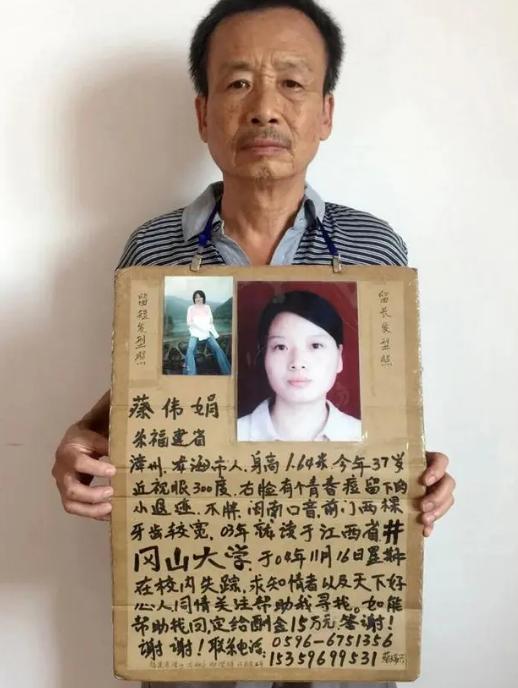 留短发型照
留长发型照
蔡伟娟
系福建省
漳州、龙海市人、身高1.64米、今年37岁
近视眼300度、右脸有个青春痘留下的
小退迹、不胖、闽南口音、前门两棵
牙齿较宽、03年就读于江西省井
冈山大学、于04年11月16日星期
在校内失踪、求知情者以及天下好
心人同情关注帮助我寻找。如能
帮助找回,定给酬金15万元、答谢!
谢谢!联系电话:0596-6751356
15359699531